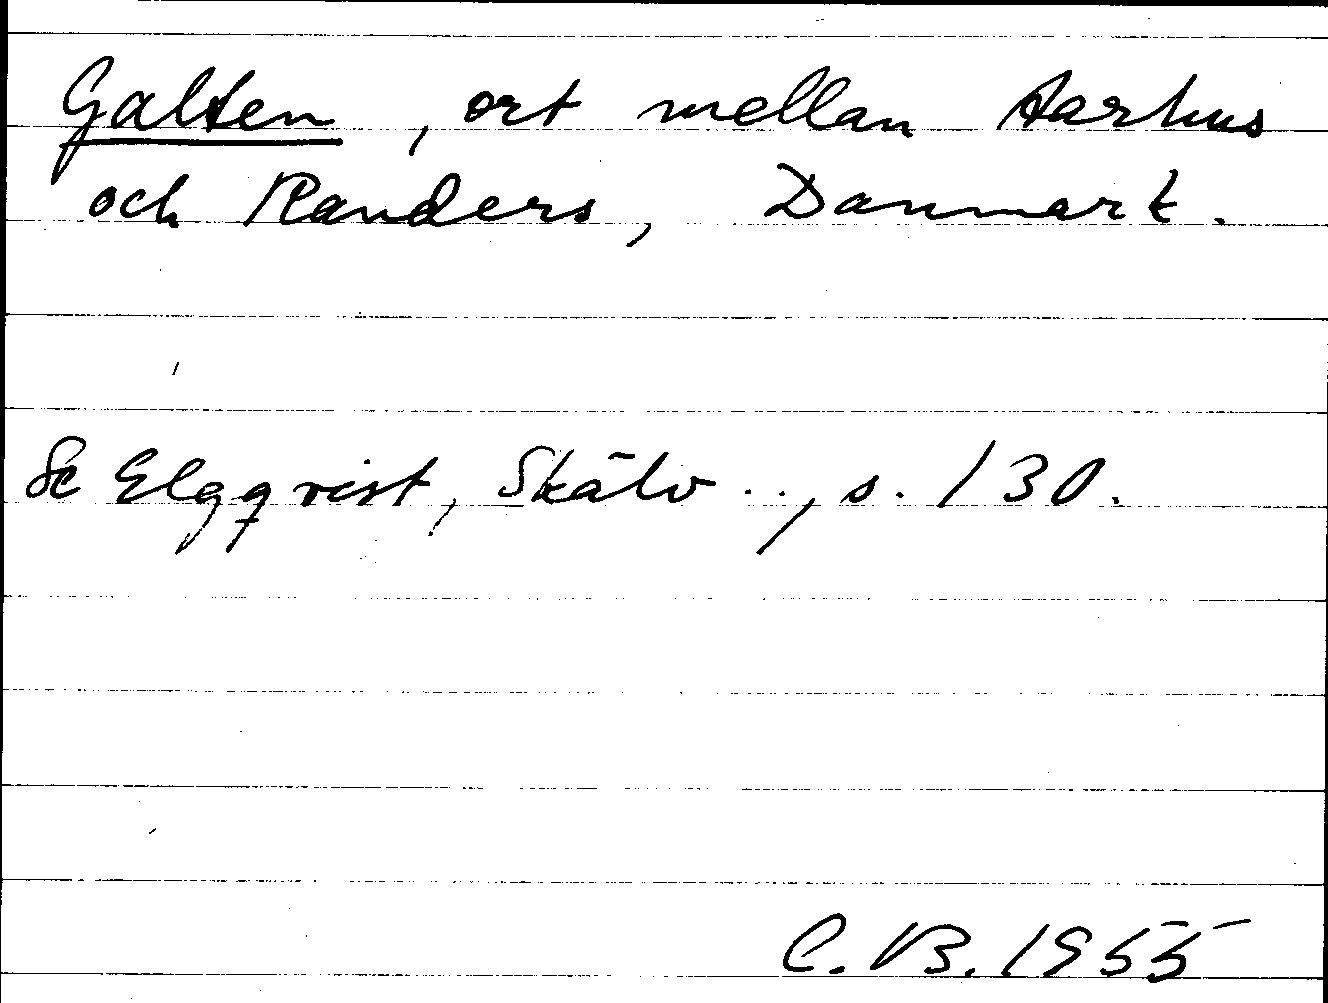 Galten, ort mellan Aarhus
och Randers, Danmark.
Se Elgqvist, Skälv.., s. 130.
C. B. 1955